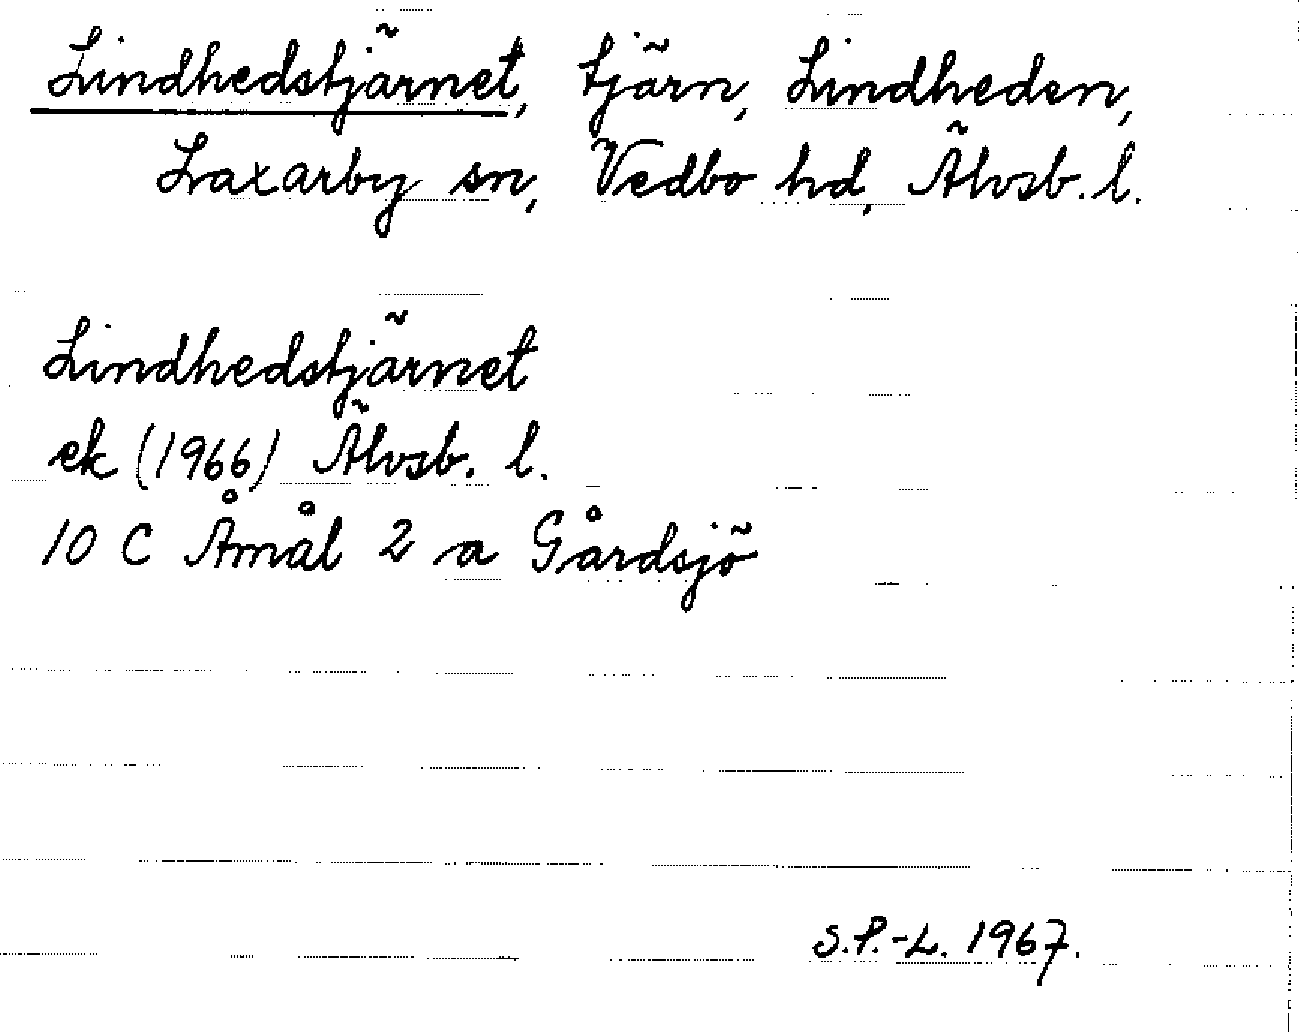 Lindhedstjärnet, tjärn, Lindheden,
Laxarby sn, Vedbo hd, Älvsb. l.
Lindhedstjärnet
ek (1966) Älvsb. l.
10 C Åmål 2 a Gårdsjö
S.P.-L. 1967.